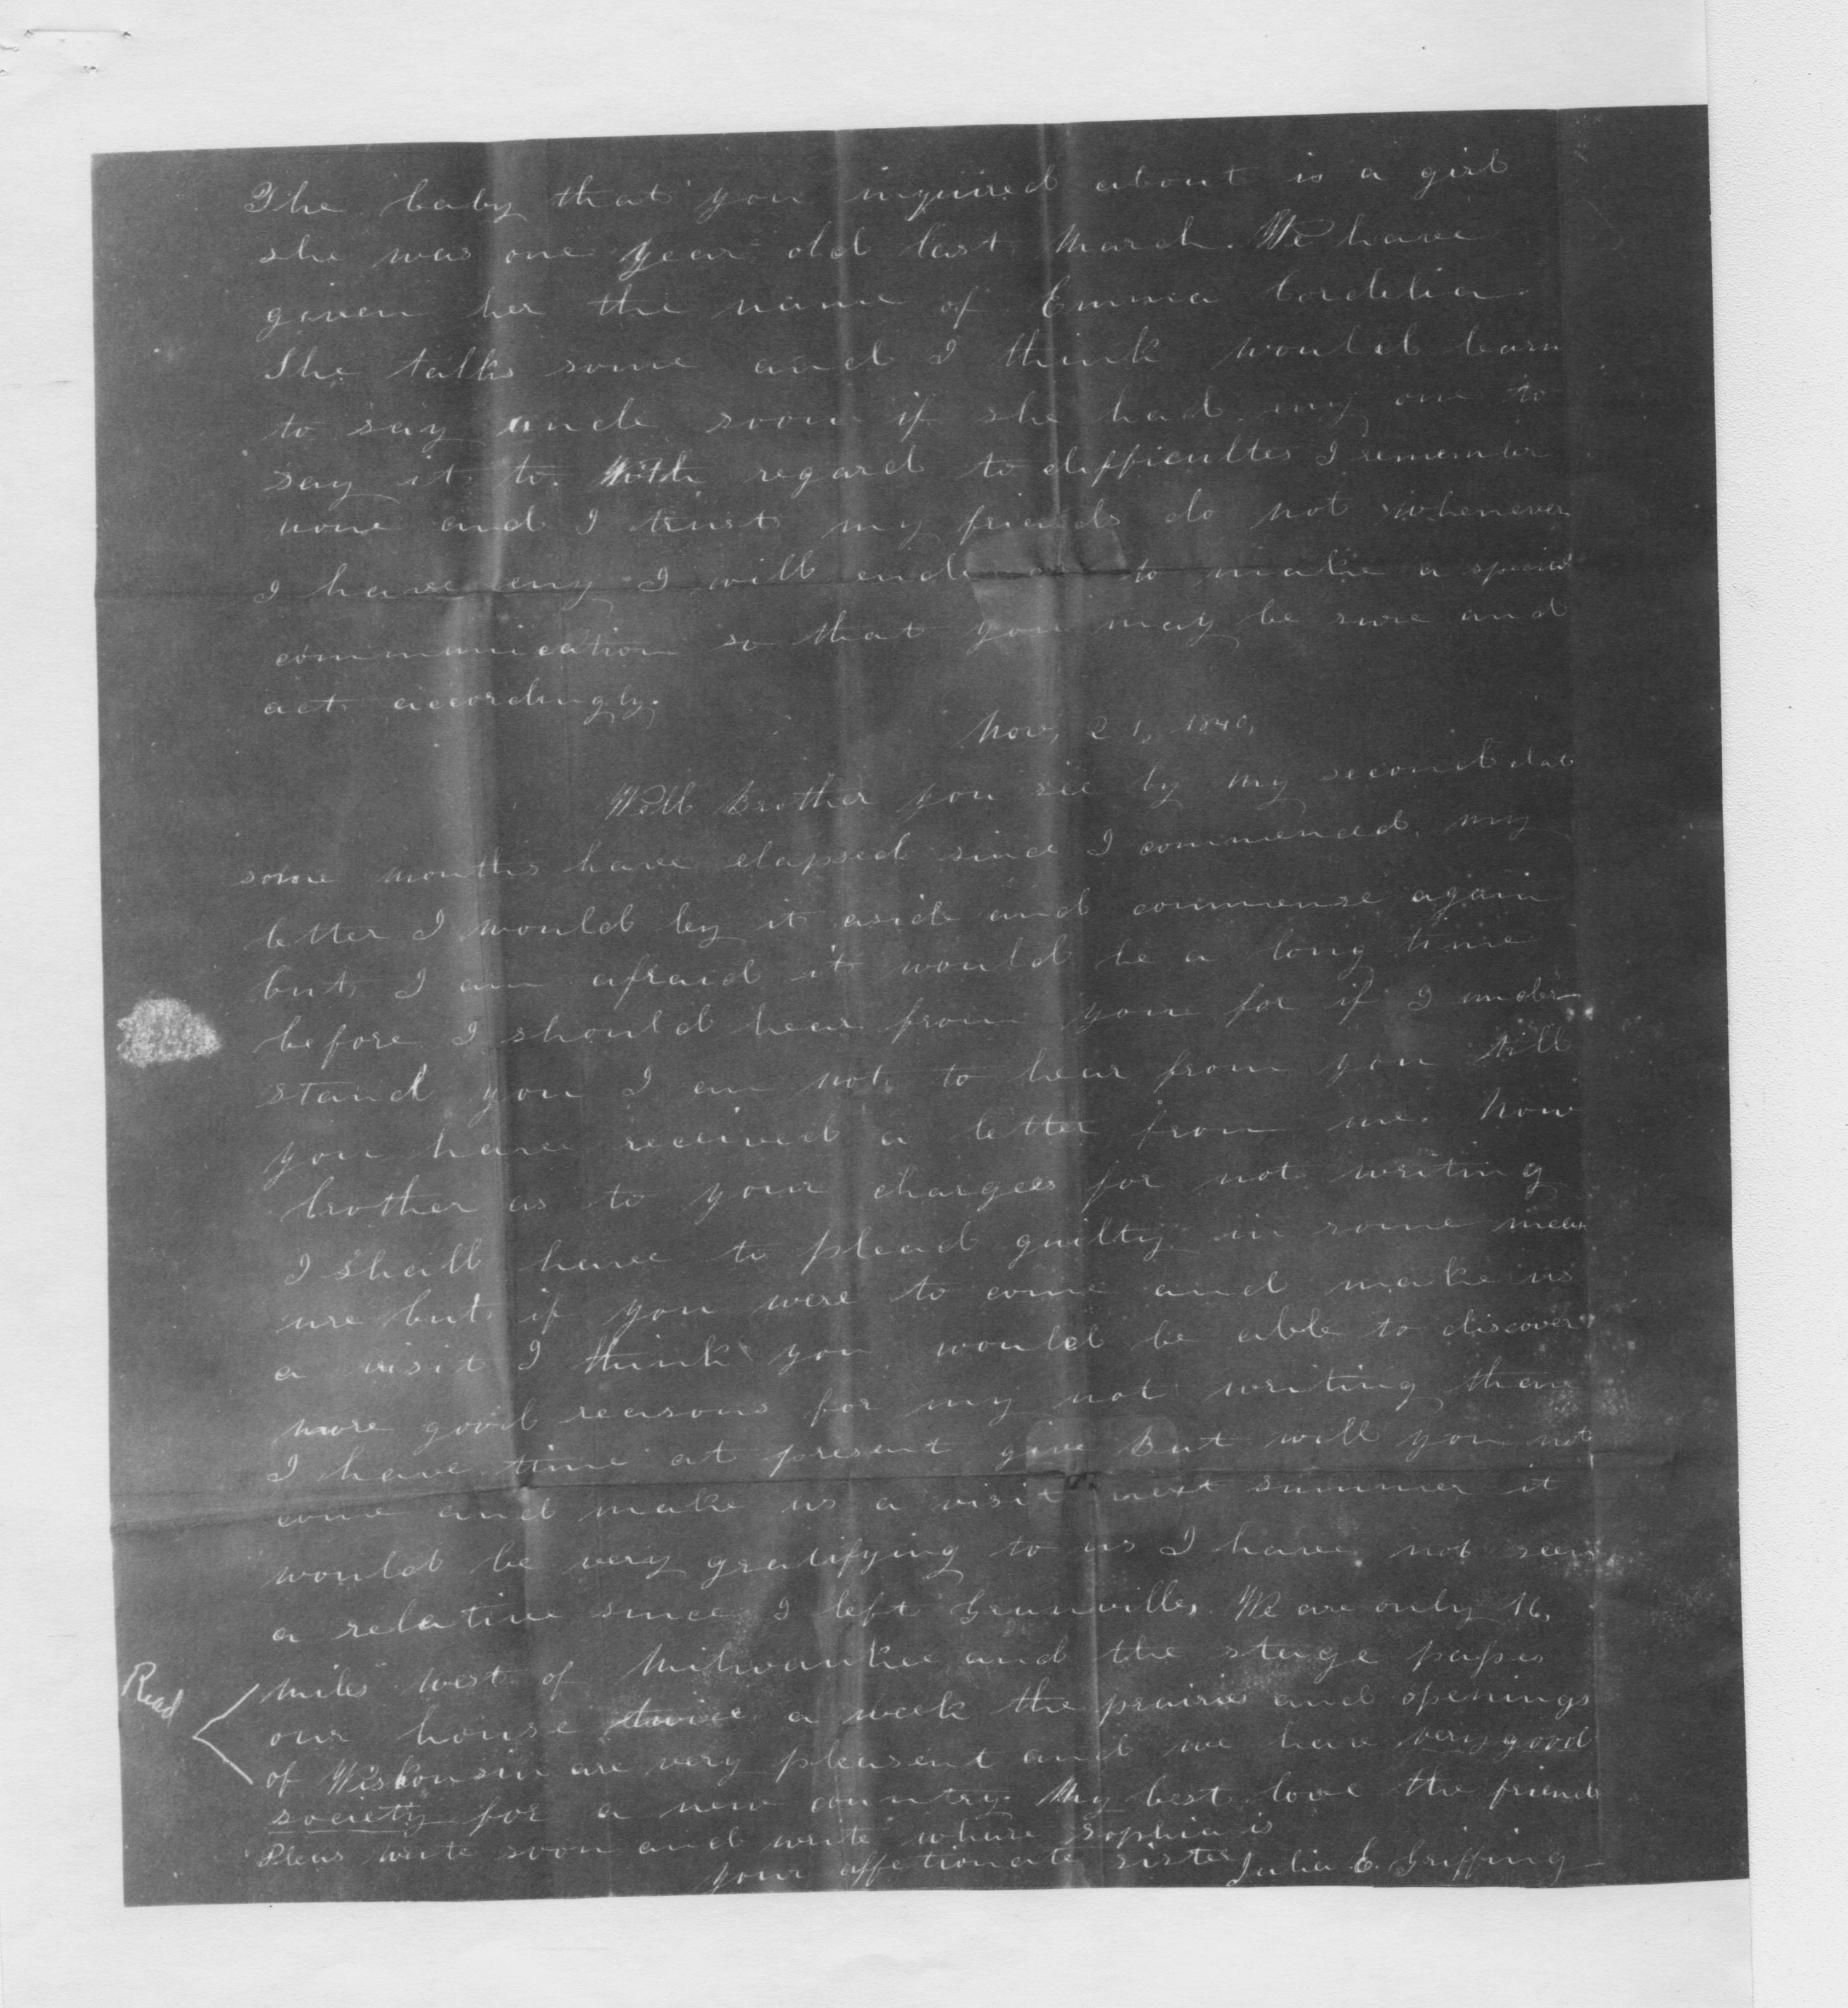 The baby that you inquired about is a girl
she was one year old last March. We have
given her the name of Emma Cordelia.
She talks some and I think would learn
to say uncle soon if she had eny one to
say it to. With regard to difficultes I remember
none and I trust my friends do not whenever
I have eny I will to make a special
communication so that you may be sure and
act accordingly.
Nov, 21, 1840,
Well Brother you see by my second date
some months have elapsed since I commenced my
letter I would ley it aside and commense again
but, I am afraid it would be a long time
before I should hear from you for if I under
stand you I am not to hear from you till
you have received a letter from me. Now
brother as to your charges for not writing
I shall have to plead guilty in some meas
ure but if you were to come and make us
a visit I think you would be able to discover
more good reasons for my not writing than
I have time at present give But will you not
come and make us a visit next summer it
would be very gratifying to us I have not seen
a relative since I left Grunville, We are only 16,
miles west of Milwaukee and the stage passes
our house twice a week the prairies and openings
of Wiskonsin are very pleasent and we have very good
society for a new country. My best love the friends
Pleas write soon and write whare Sophia is
your affetionate sister Julia E. Griffing
Read